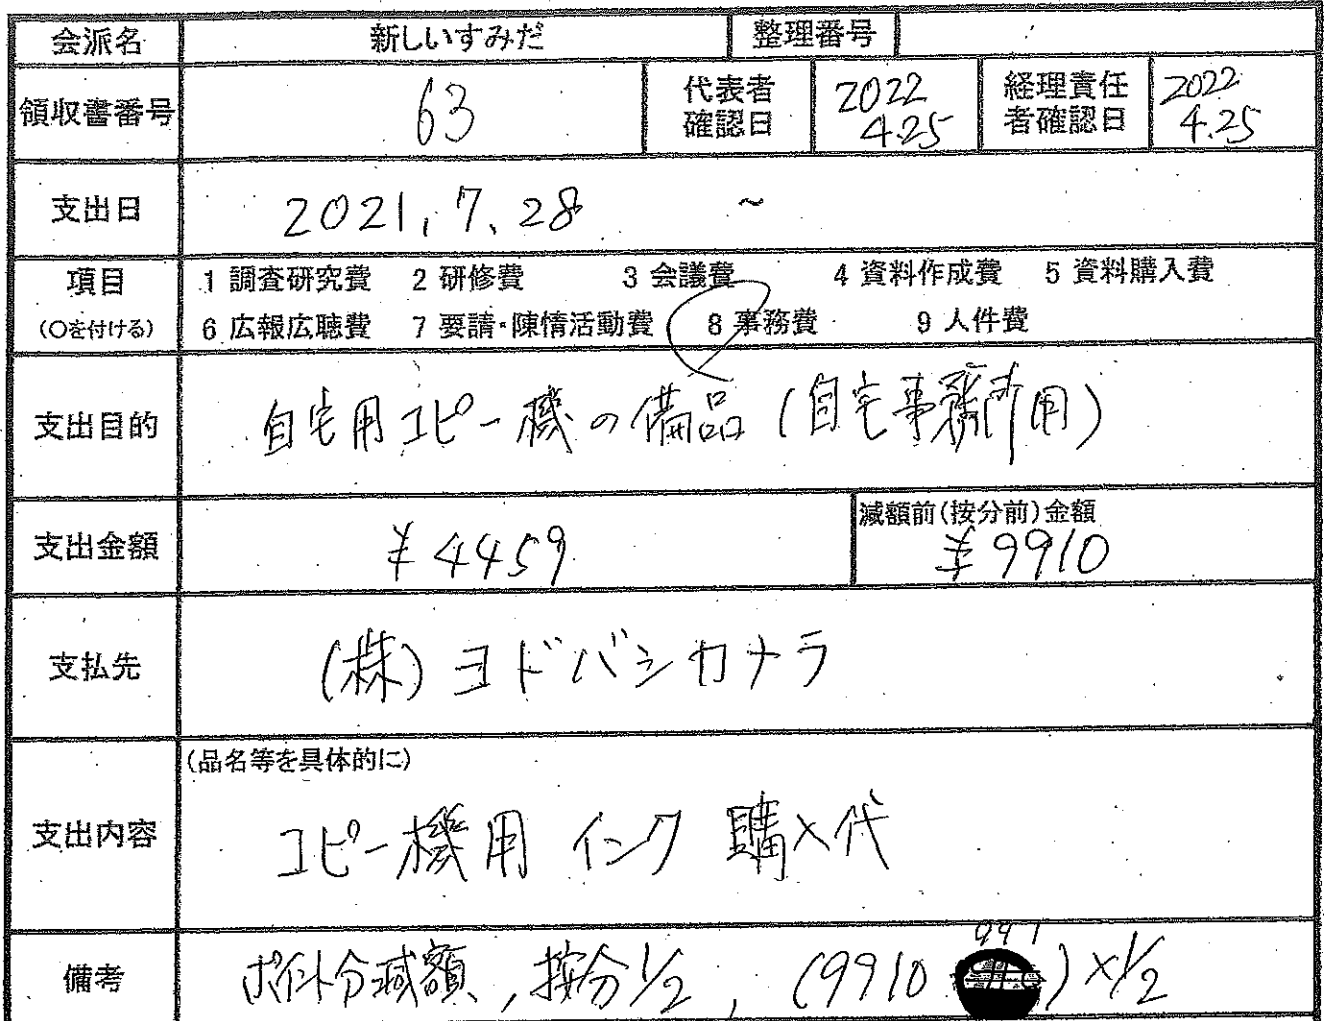 会派名 新しいすみだ 整理番号
領収書番号 63 代表者確認日 2022 4.25 経理責任者確認日 2022 4.25
支出日 2021.7.28 ~
項目 1 調査研究費 2 研修費 3 会議費 4 資料作成費 5 資料購入費
(○を付ける) 6 広報広聴費 7 要請・陳情活動費 8 事務費 9 人件費
支出目的 自宅用コピー機の備品(自宅事務所用)
支出金額 ¥4459 減額前(按分前)金額 ¥9910
支払先 (株)ヨドバシカメラ
(品名等を具体的に)
支出内容 コピー機用 インク 購入代
991
備考 ポイント分減額、按分1/2, (9910 )×1/2